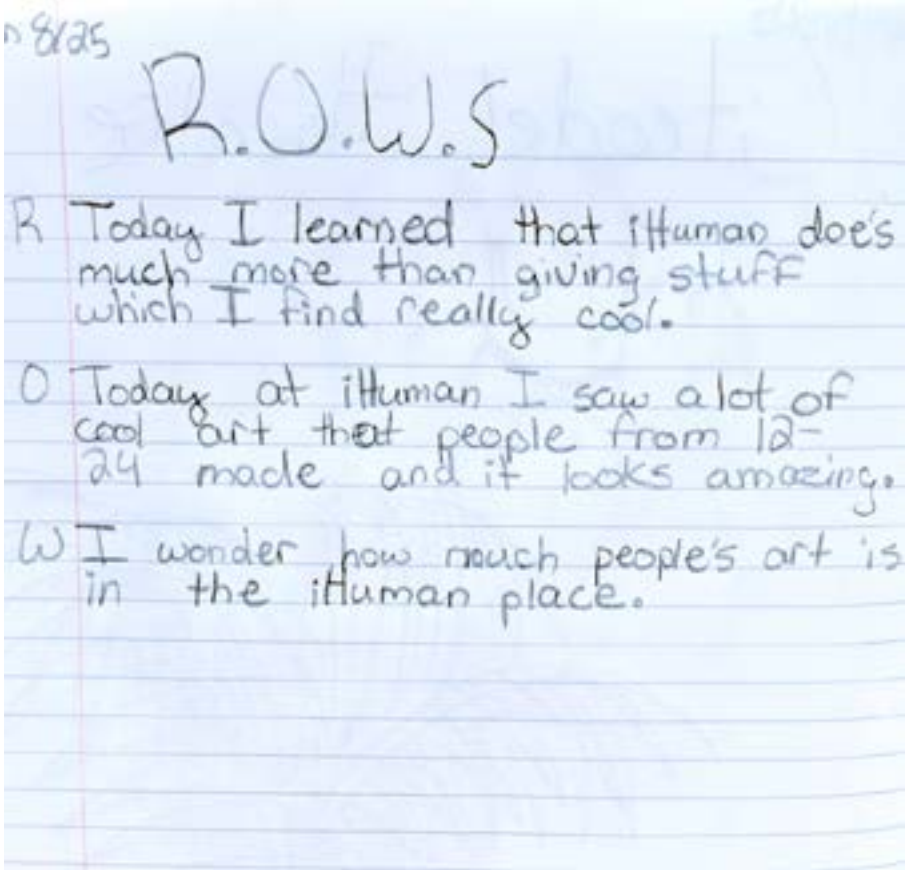 8/25
R.O.W.S
R Today I learned that iHuman doe's
much more than giving stuff
which I find really cool.
O Today at iHuman I saw alot of
cool art that people from 12-
24 made and it looks amazing.
W I wonder how much people's art is
in the iHuman place.